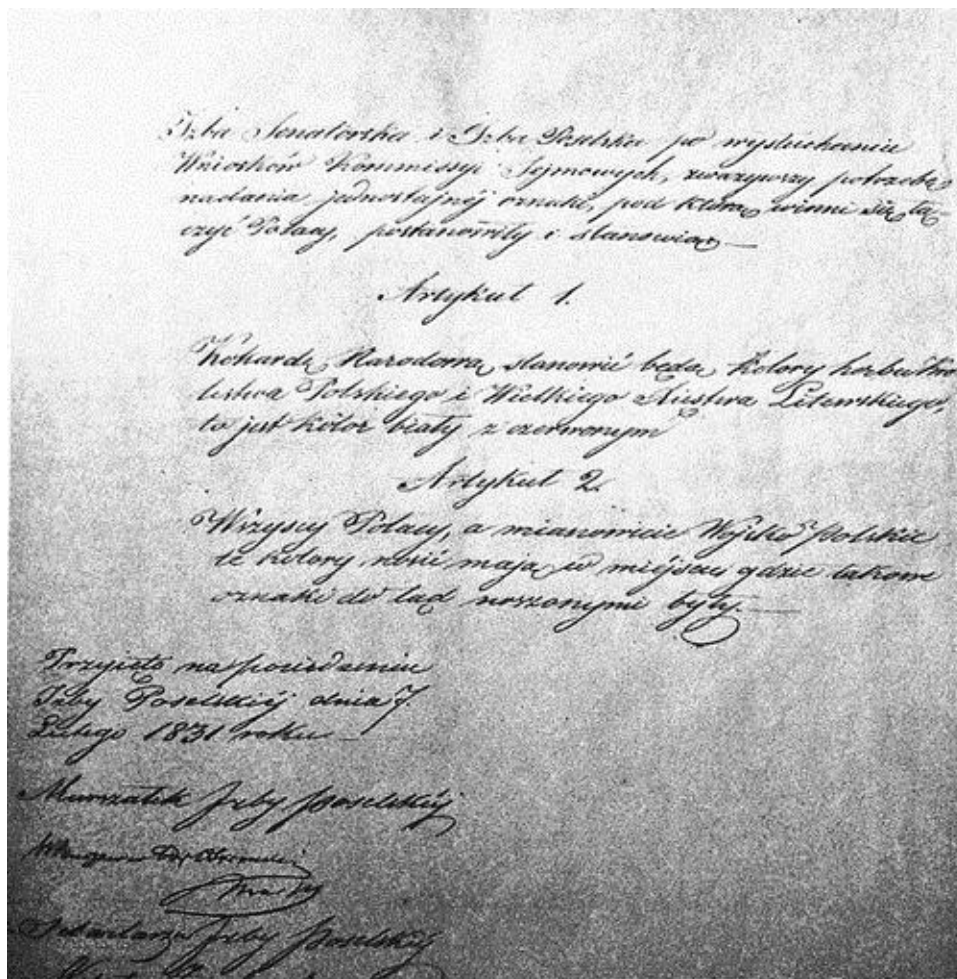 Izba Senatorska i Izba Poselska po wysłuchaniu
Wniosków Kommissyi Sejmowych, zważywszy potrzebę
nadania jednostajnéj oznaki, pod którą winni się łą-
czyć Polacy, postanowiły i stanowią —
Artykuł 1.
Kokardę Narodową stanowić będą kolory herbu Kró
lestwa Polskiego i Wielkiego Xięstwa Litewskiego,
to jest kolor biały z czerwonym
Artykuł 2.
Wszyscy Polacy, a mianowicie Wojsko Polskie
te kolory nosić mają w miejscu gdzie takowe
oznaki do tąd noszonymi były. —
Przyięto na posiedzeniu
Izby Poselskiéj dnia 7.
Lutego 1831 roku —
Marszałek Izby Poselskiéj
Sekretarz Izby Poselskiéj